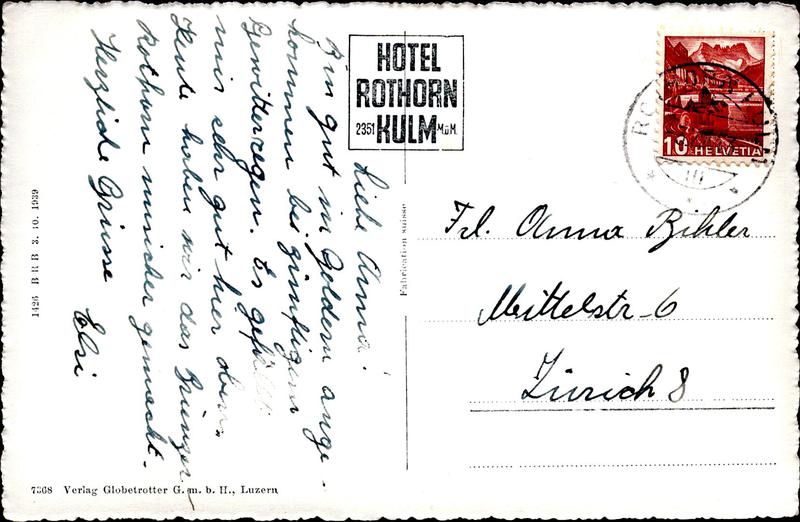 Liebe Anna!
Bin gut in Goldern ange-
kommen bei günstigem
Gewitterregen. Es gefällt
mir sehr gut hier oben,
heute haben wir das Brienzer
Rothorn unsicher gemacht.
Herzliche Grüsse Elsi
HOTEL
ROTHORN
2351 KULM M.ü.M.
10 HELVETIA
Frl. Anna Bihler
Mittelstr. 6
Zürich 8
Fabrication suisse
1426 BRB 3. 10. 1939
7368 Verlag Globetrotter G. m. b. H., Luzern